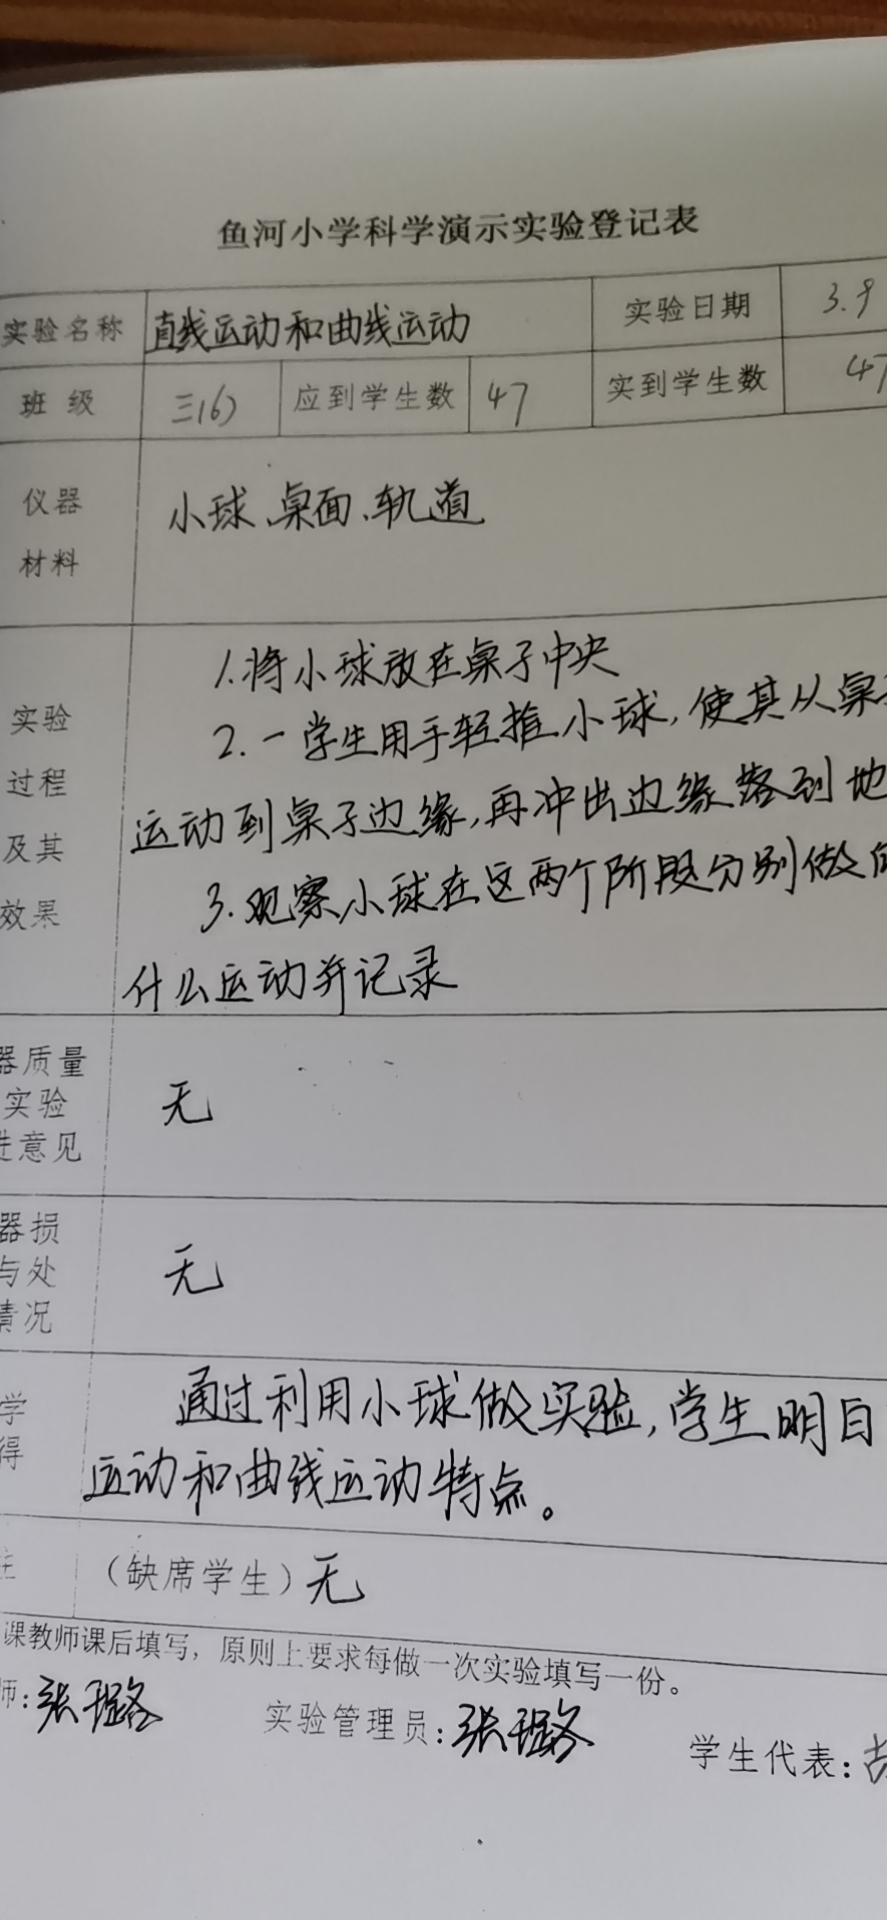 鱼河小学科学演示实验登记表
实验名称 直线运动和曲线运动 实验日期 3.9
班 级 三(6) 应到学生数 47 实到学生数 47
仪器
材料
小球、桌面、轨道
实验
过程
及其
效果
1.将小球放在桌子中央
2.一学生用手轻推小球,使其从桌
运动到桌子边缘,再冲出边缘落到地
3.观察小球在这两个阶段分别做的
什么运动并记录
器质量
实验
进意见
无
器损
与处
情况
无
学
得
通过利用小球做实验,学生明白
运动和曲线运动特点。
注 (缺席学生)无
课教师课后填写,原则上要求每做一次实验填写一份。
师:张 实验管理员:张 学生代表: